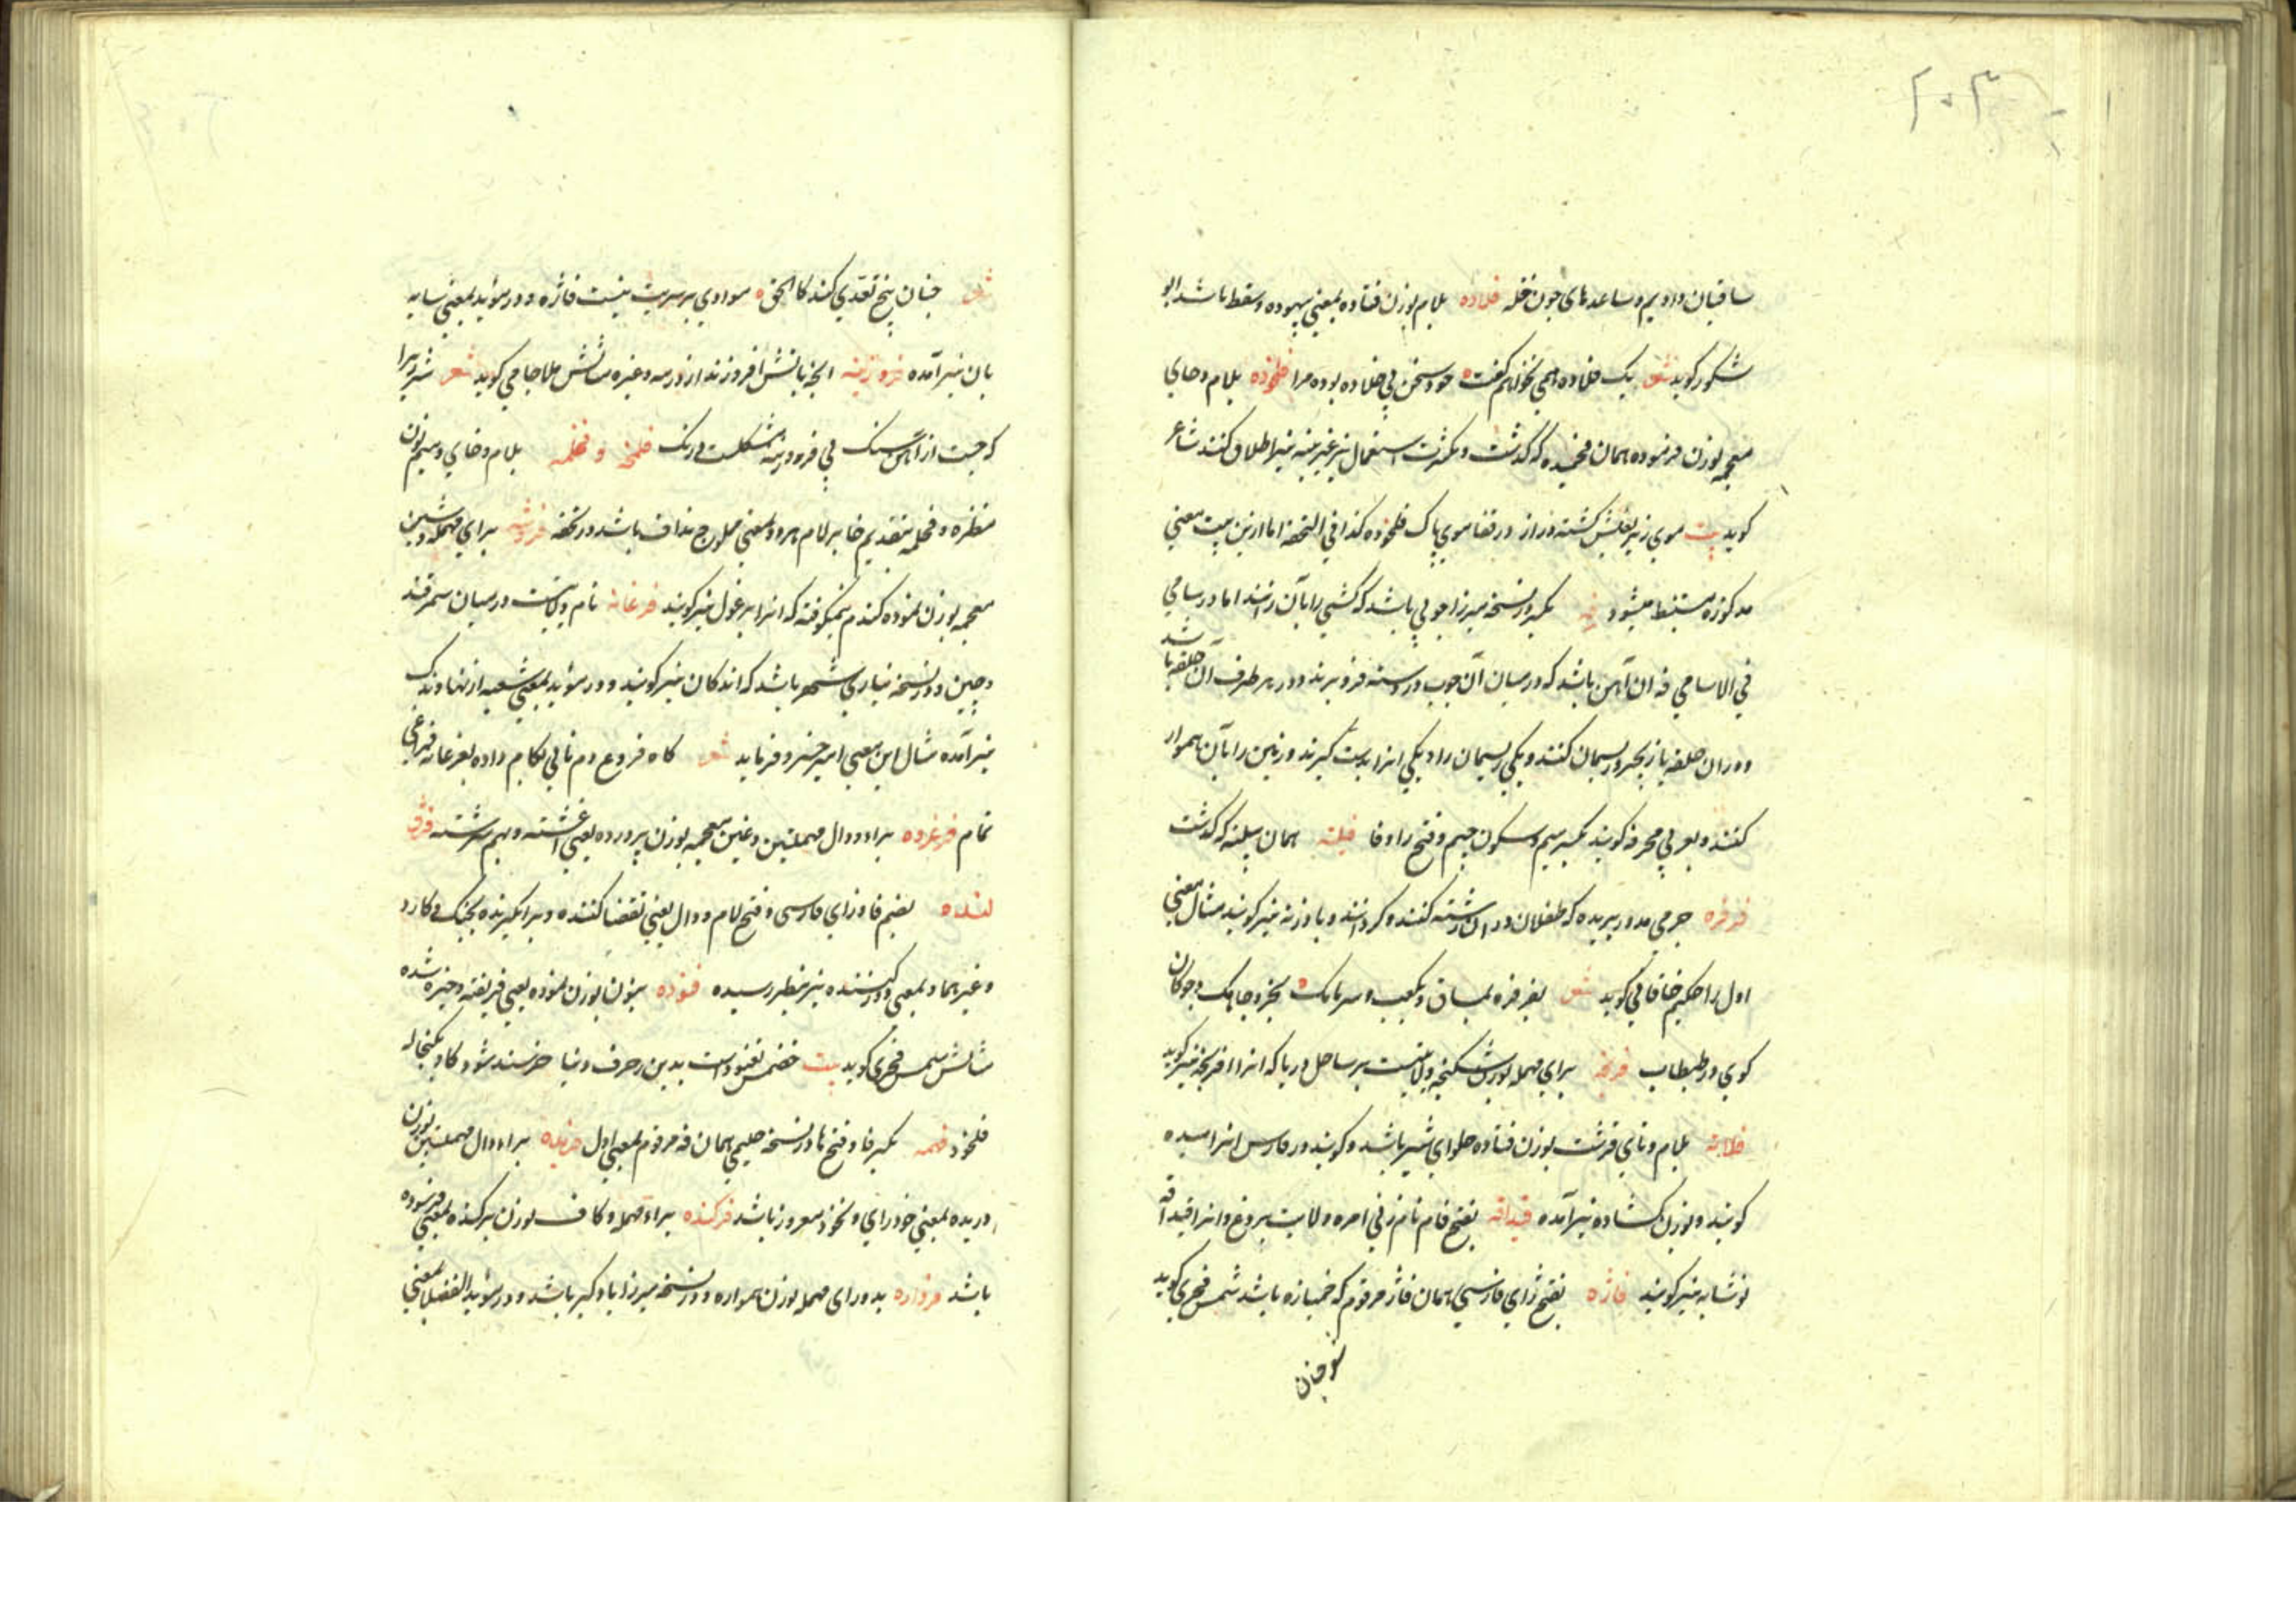 ۲۰۳
ساقیان دادیم و ساعدهای چون فله فلاده بلام بوزن فتاده بمعنی بیهوده و سقط باشد ابو
شکور گوید شعر یک فلاده همی نخواهم گفت خود سخن بی فلاده بوده مرا فلخوده بلام و خای
معجمه بوزن فرموده همان فخمیده که گذشت و بکثرت استعمال بر غیر پنبه نیز اطلاق کنند شاعر
گوید بیت موی زیر بغلش گشته دراز در قفا موی پاک فلخوده کذا فی التحفه اما ازین بیت معنی
مذکوره مستنبط میشود فه بکسر در نسخه میرزا چوبی باشد که کشتی را بآن رانند اما در سامی
فی الاسامی فه آن آهن باشد که در میان آن چوب در دسته فرو برند و در هر طرف آن حلقه باشد
و در آن حلقه یا زنجیر و ریسمان کنند و یکی ریسمان را و یکی آنرا بدست گیرند و زمین را بآن هموار
کنند و بعربی مجرفه گویند بکسر میم و سکون جیم و فتح را و فا فیلته همان پیلته که گذشت
فرفره چرمی مدور بریده که طفلان در آن رشته کنند و گردانند و بادزنه نیز گویند مثال معنی
اول را حکیم خاقانی گوید شعر بفرفره بمسان و بکعب و سرمامک بخرد چابک و چوگان
گوی در طبطاب فرنجه برای مهمله بوزن شکنجه ولایتیست بر ساحل دریا که آنرا افرنجه نیز گویند
فلاته بلام و تای قرشت بوزن فتاده حلوای شیر باشد و گویند در فارس آنرا
گویند و بوزن گشاده نیز آمده قیدافه بفتح فا نام زنی امره ولایت بردع و آنرا قیدافه
نوشابه نیز گویند فاژه بفتح ژای فارسی همان فاژ مرقوم که خمیازه باشد شمس فخری گوید
شعر چنان
شعر چنان پنج تعدی کند کالحق موادی بر سریت نیست فاژه و در مؤید بمعنی سایه
بان نیز آمده فروزینه آنچه بآتش افروزند از درمنه و غیره مثالش ملا جامی گوید شعر شرر را
که جست از آهن و سنگ بی فروزینه مشکلست درنگ فلخمه و فخلمه بلام و خای و میم بوزن
منظره و فخلمه بتقدیم خا بر لام هر دو بمعنی محلوج نداف باشد در تحفه فروشه برای مهمله و شین
معجمه بوزن نموده گندم نیمکوفته که آنرا برغول نیز گویند فرغانه نام ولایتیست در میان سمرقند
و چین و در نسخه نیازی شهر باشد که اندکان نیز گویند و در مؤید بمعنی شعبه از نهاوندک
نیز آمده مثال این معنی امیر خسرو فرماید شعر کاه فروع دم نائی بکام داده بفرغانه فراغی
تمام فرغرده برا و دال مهملتین و غین معجمه بوزن پرورده یعنی آغشته و بهم سرشته فژ
لنده بضم فا و زای فارسی و فتح لام و دال یعنی تقضا کننده و برانگیزنده بجنگ و کارد
و غیرهما و بمعنی دور کننده نیز بنظر رسیده فنوده بنون بوزن نموده یعنی فریفته و خیره شده
مثالش شمس فخری گوید بیت خصمش بفنوداست بدین زخرف دنیا خرسند شود گاو بکنجاله
فلخود فهمه بکسر فا و فتح ها در نسخه حلیمی همان فه مرقوم بمعنی اول فرنده برا و دال مهملتین بوزن
دریده بمعنی خودرای و بخود مغرور باشد فرکنده برای مهمله و کاف بوزن پرکنده بمعنی فرسوده
باشد فرواره بدو رای مهمله بوزن همواره و در نسخه میرزا بادگیر باشد و در مؤید الفضلا بمعنی